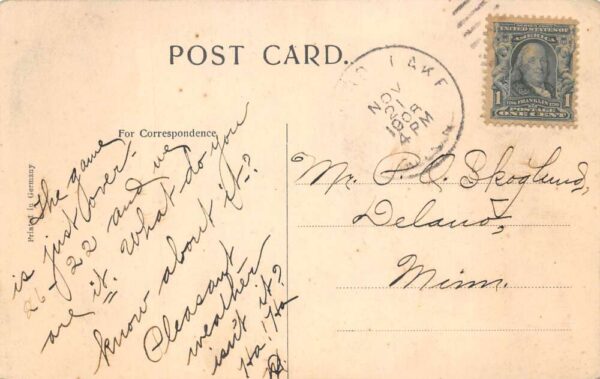 POST CARD.
For Correspondence
Printed in Germany
The game
is just over-
26-22 and we
are it. What do you
know about it-?
Pleasant
weather
isn't it?
Ha! Ha
LAKE
NOV
21
1908
4 PM
MINN
UNITED STATES OF
AMERICA
1
1
FRANKLIN
POSTAGE
ONE CENT
Mr. P. C. Skoglund,
Delano,
Minn.